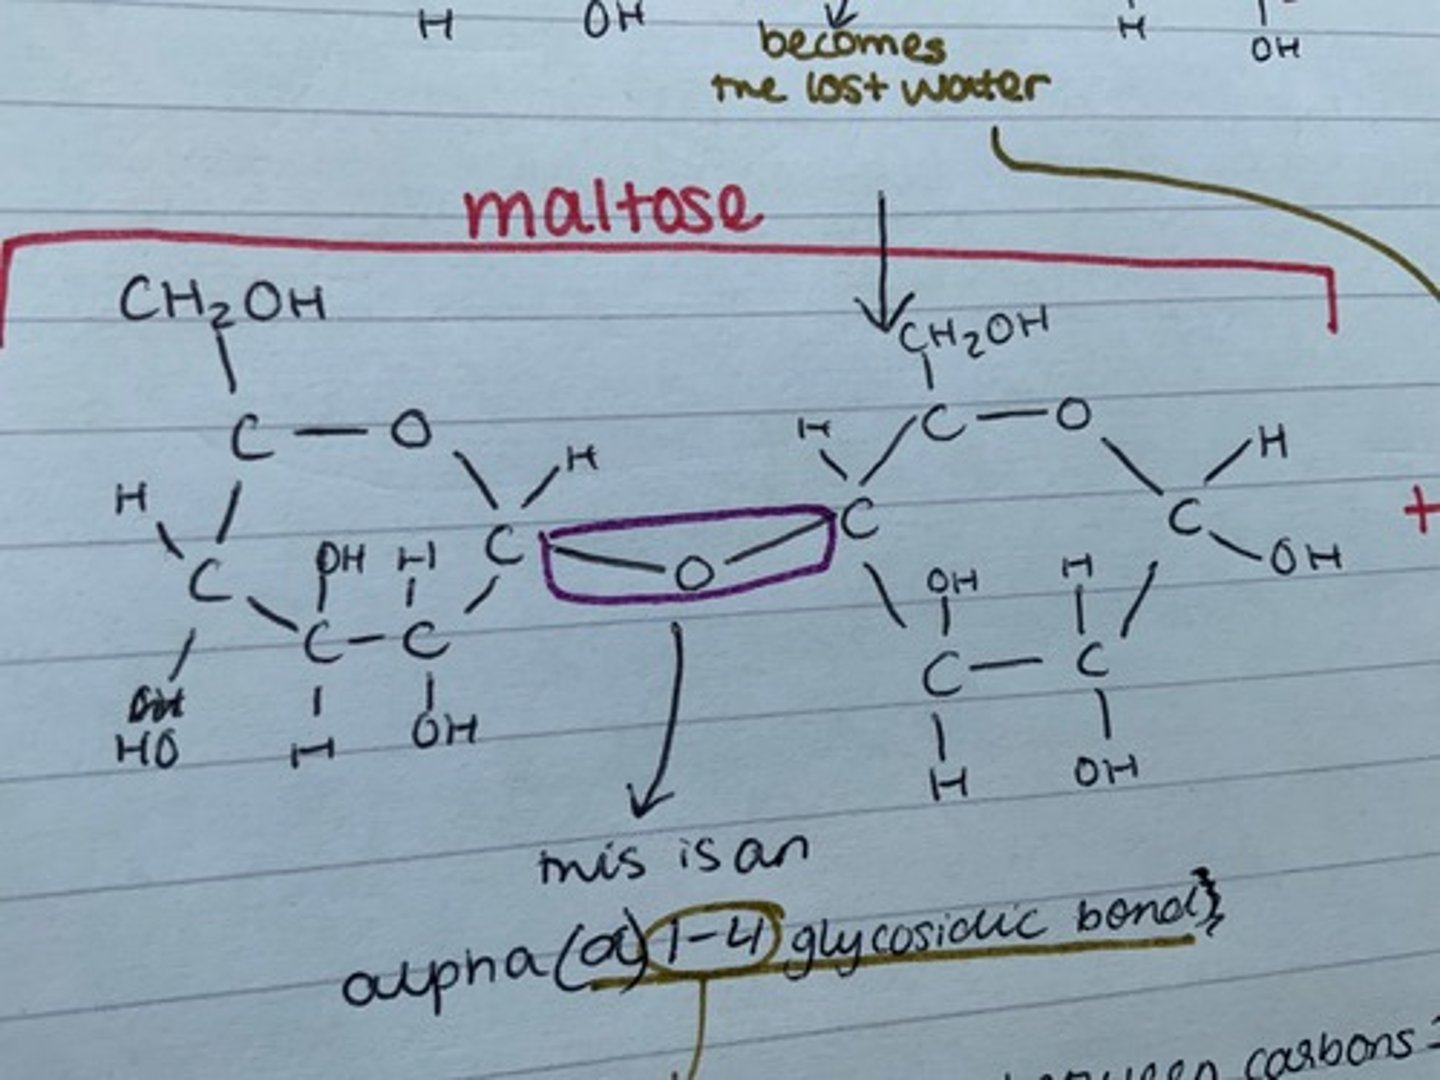 H OH H OH
becomes
the lost water
maltose
CH₂OH CH₂OH
C O H C O H
H C H C C OH
C OH H O OH H
C C C C
HO H OH H OH
this is an
alpha (α) 1-4 glycosidic bond}
carbons =
+